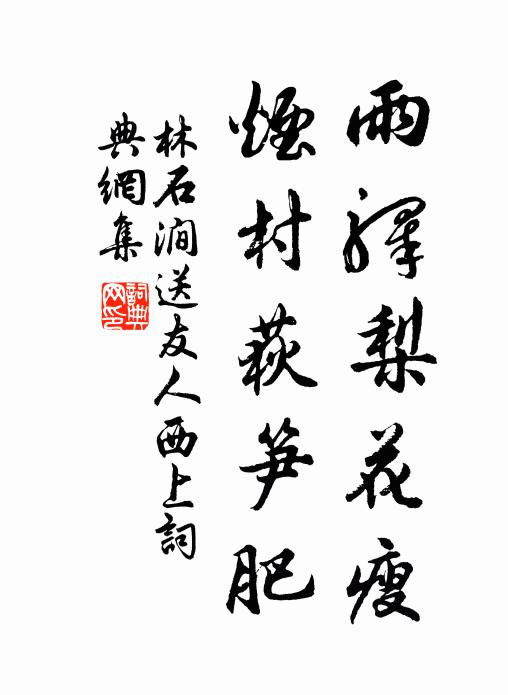 雨驛梨花瘦
煙村荻笋肥
林石澗送友人西上詞
典網集
詞典
网印